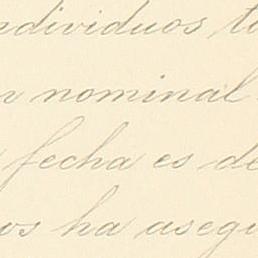 ndividuos t
n nominal
fecha es de
os ha asegu